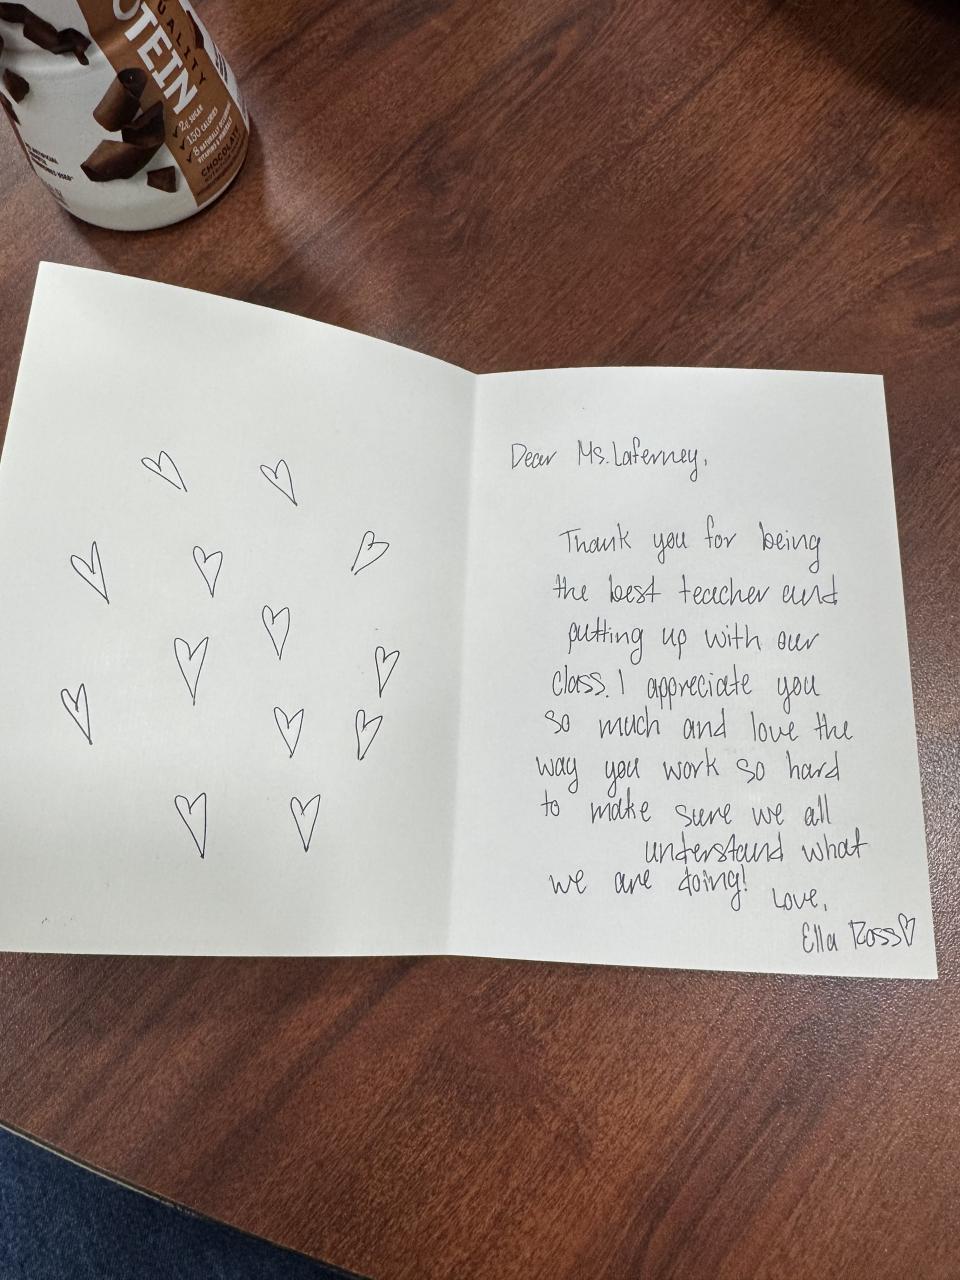 QUALITY
OTEIN
2g SUGAR
150 CALORIES
8 NATURALLY
VITAMINS & MINERALS
CHOCOLATE
Dear Ms. Laferney,
Thank you for being
the best teacher and
putting up with our
class. I appreciate you
so much and love the
way you work so hard
to make sure we all
understand what
we are doing!
Love,
Ella Ross